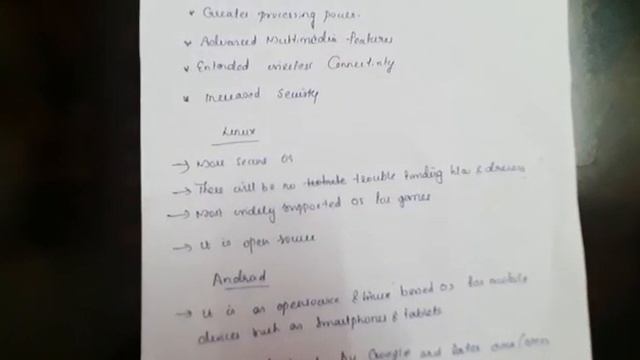 Greater processing power.
Advanced Multimedia features
Extended wireless Connectivity
Increased Security
Linux
→ More secure OS
→ There will be no trouble finding h/w & drivers
→ Most widely supported OS for games
→ It is open source
Android
→ It is an opensource & linux based OS for mobile
devices such as Smartphones & tablets
by Google and later